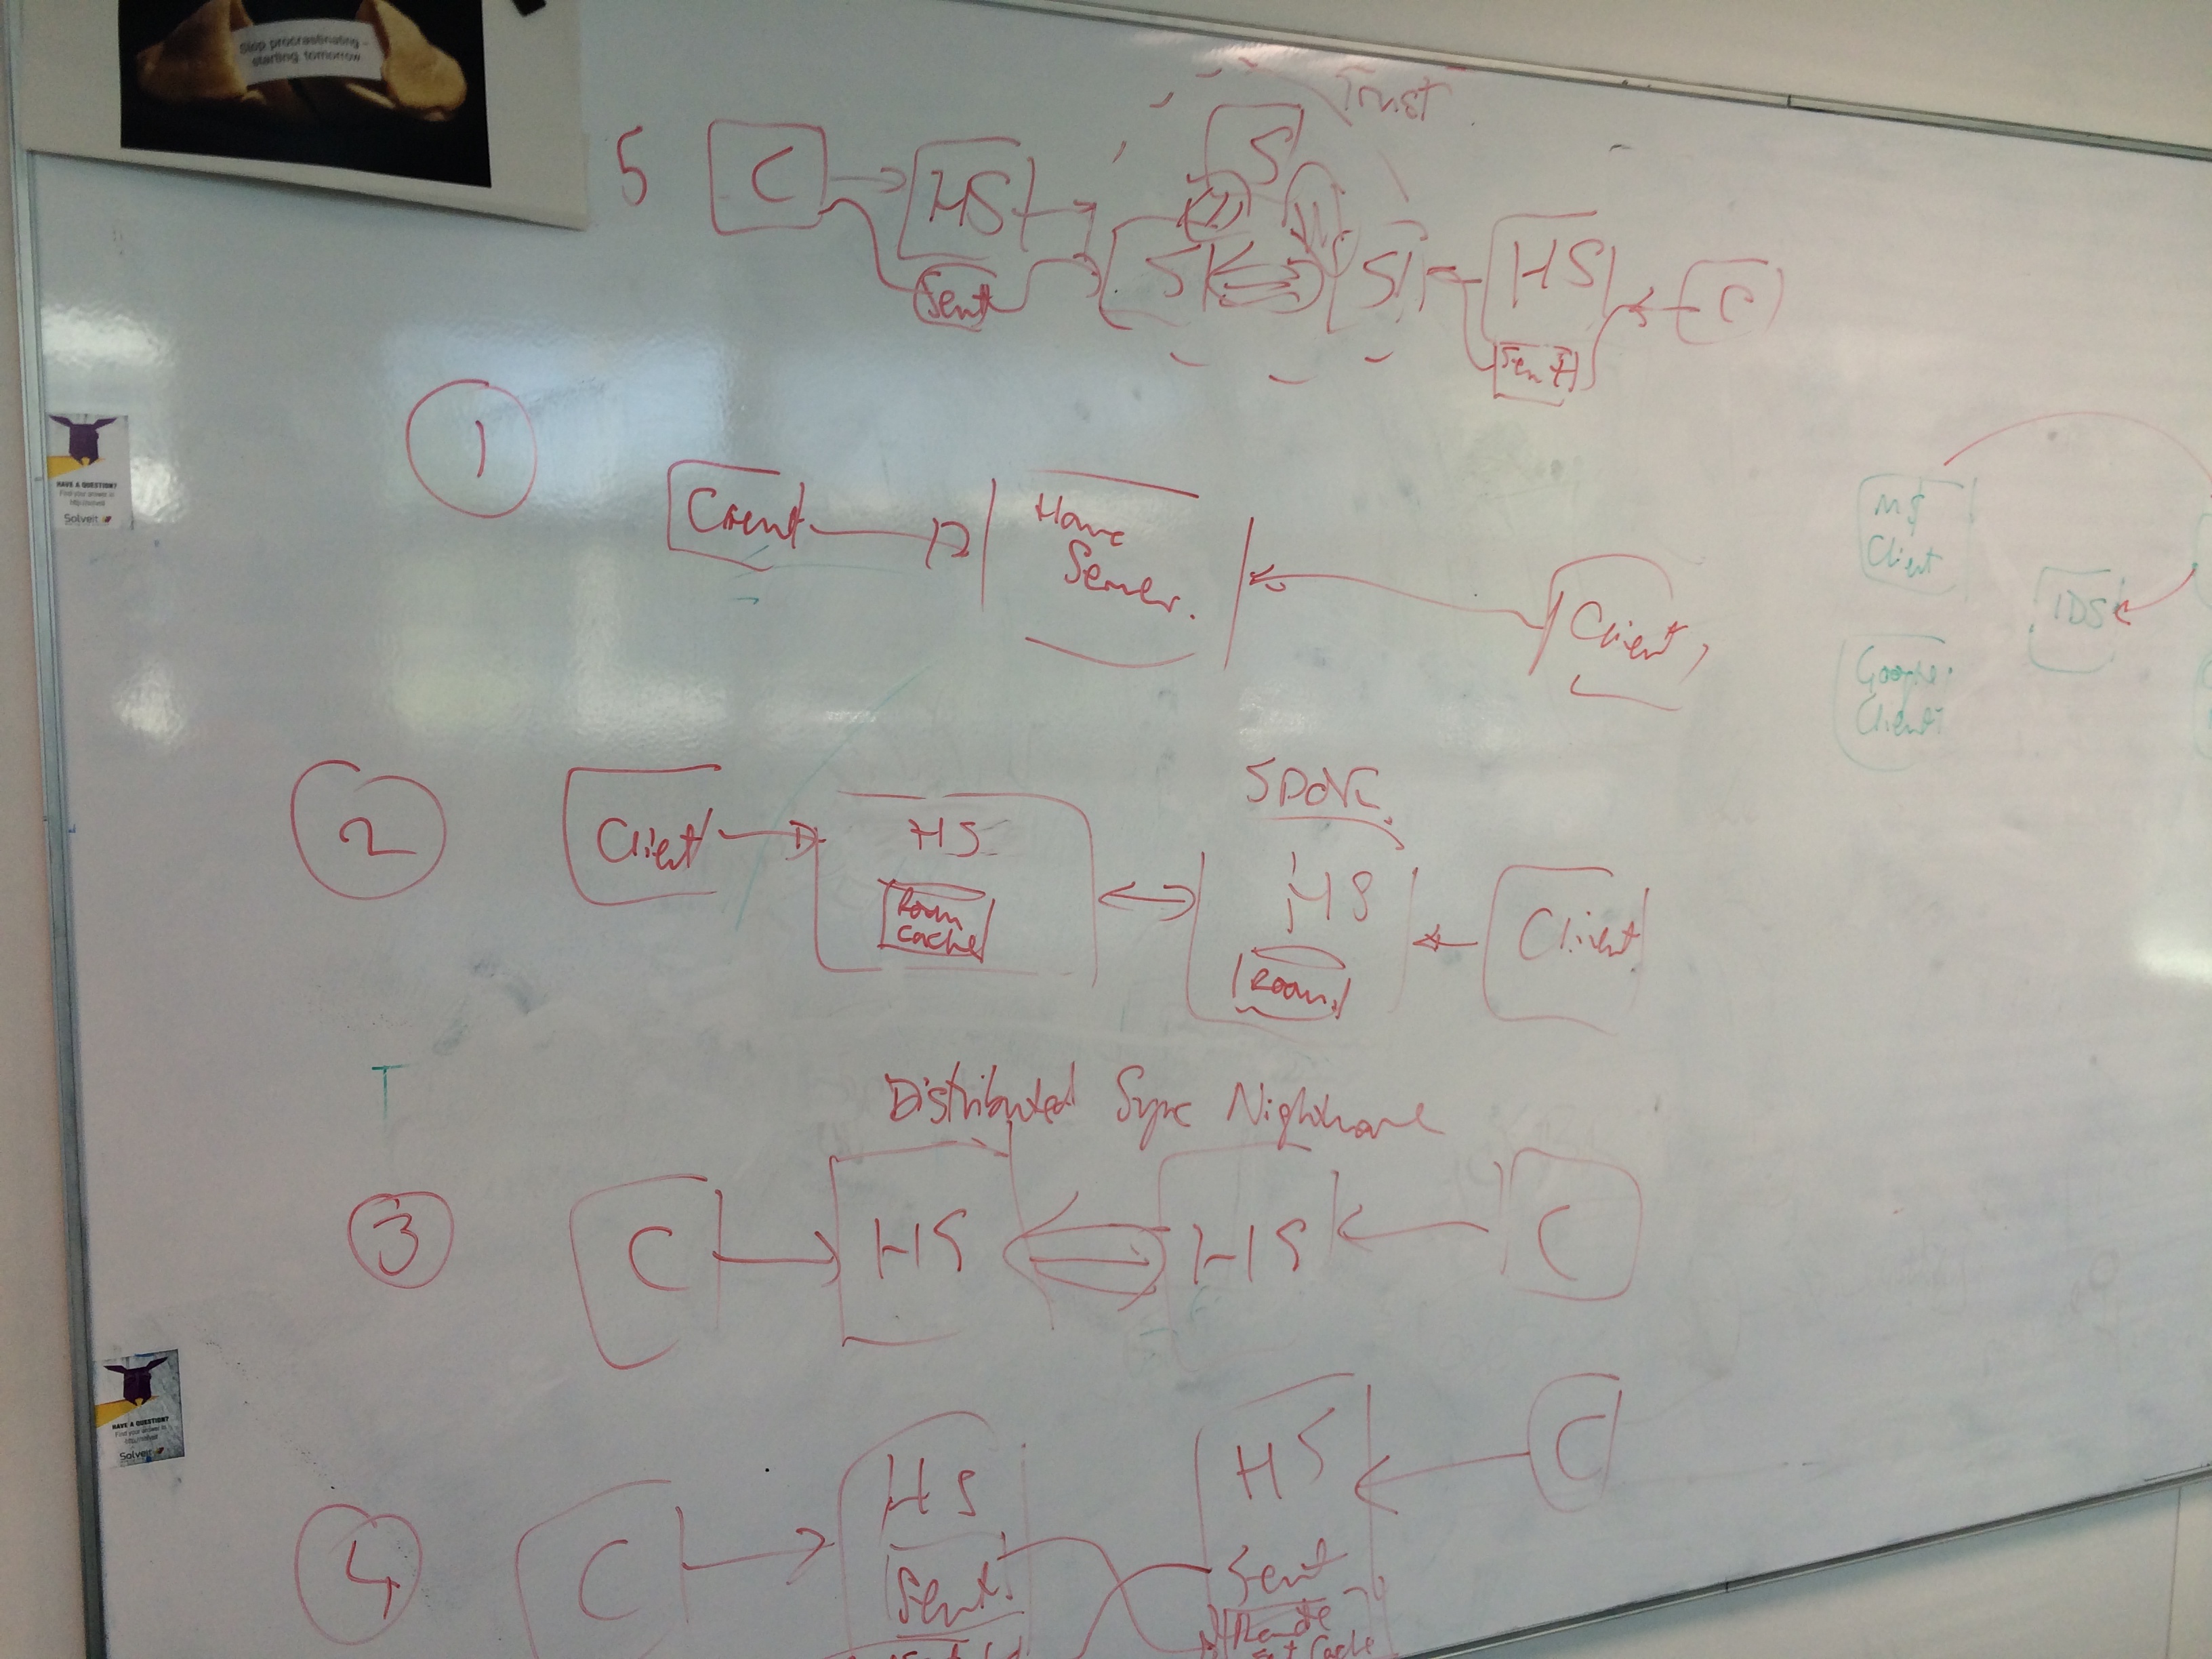 Stop procrastinating -
starting tomorrow
Trust
5
C
HS
S
S
S
HS
C
Sent
Sent
1
Client
Home
Server.
Client
MS
Client
IDS
Google
Client
HAVE A QUESTION?
Find your answer in
Solveit
2
Client
HS
Room
Cache
SPOF
HS
Room
Client
T
Distributed Sync Nightmare
3
C
HS
HS
C
HAVE A QUESTION?
Find your answer in
Solveit
4
C
HS
Sent
HS
Sent
Remote
Cache
C